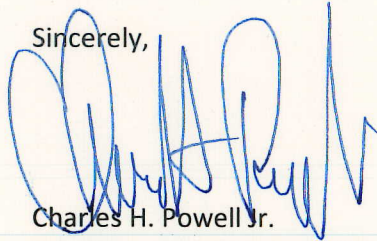 Sincerely,
Charles H. Powell Jr.